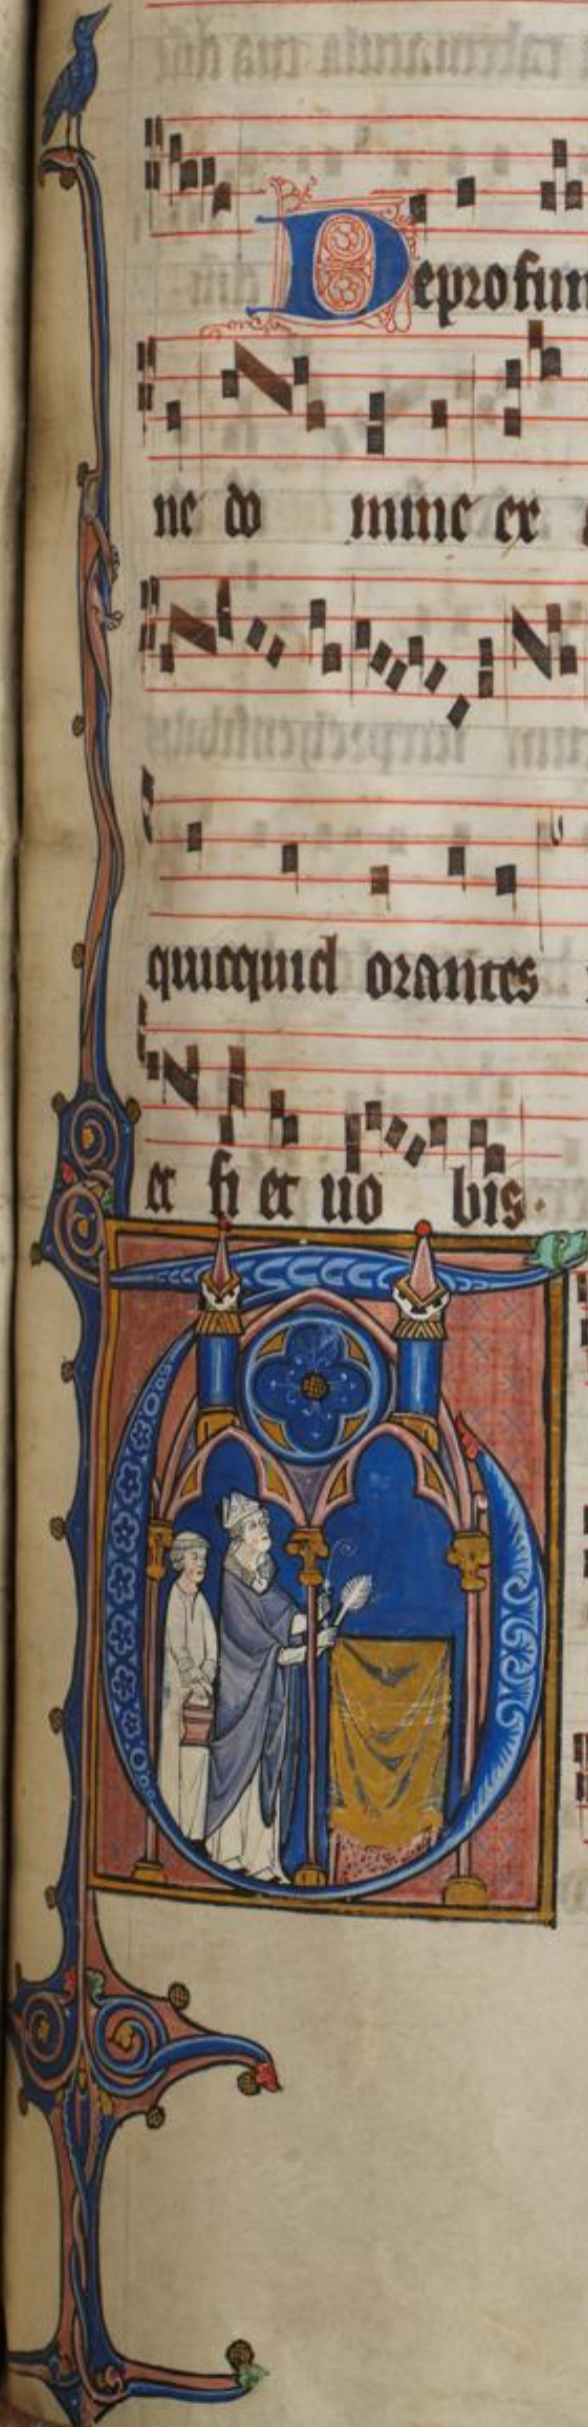 De profun
ne do mine ex
quicquid orantes
et fi et uo bis.